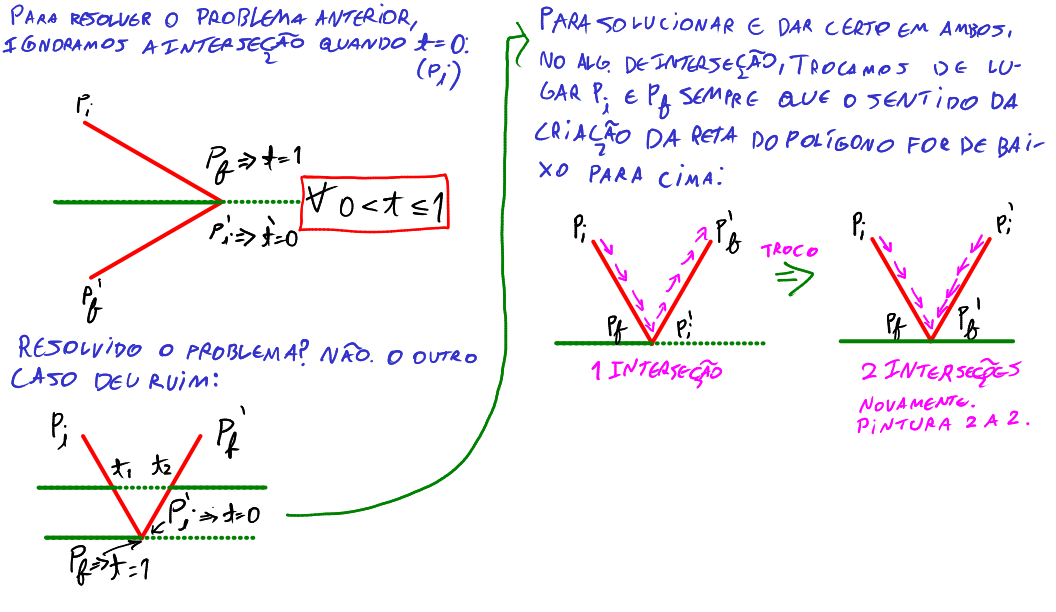 PARA RESOLVER O PROBLEMA ANTERIOR,
IGNORAMOS A INTERSEÇÃO QUANDO t=0.
(Pi)
Pi
Pf ⇒ t=1
∀ 0<t≤1
Pi' ⇒ t'=0
Pf'
RESOLVIDO O PROBLEMA? NÃO. O OUTRO
CASO DEU RUIM:
Pi
Pf'
t1 t2
Pi' ⇒ t=0
Pf ⇒ t=1
PARA SOLUCIONAR E DAR CERTO EM AMBOS,
NO ALG. DE INTERSEÇÃO, TROCAMOS DE LU-
GAR Pi E Pf SEMPRE QUE O SENTIDO DA
CRIAÇÃO DA RETA DO POLÍGONO FOR DE BAI-
XO PARA CIMA:
Pi
Pf'
Pf
Pi'
1 INTERSEÇÃO
TROCO
⇒
Pi
Pi'
Pf
Pf'
2 INTERSEÇÕES
NOVAMENTE.
PINTURA 2 A 2.